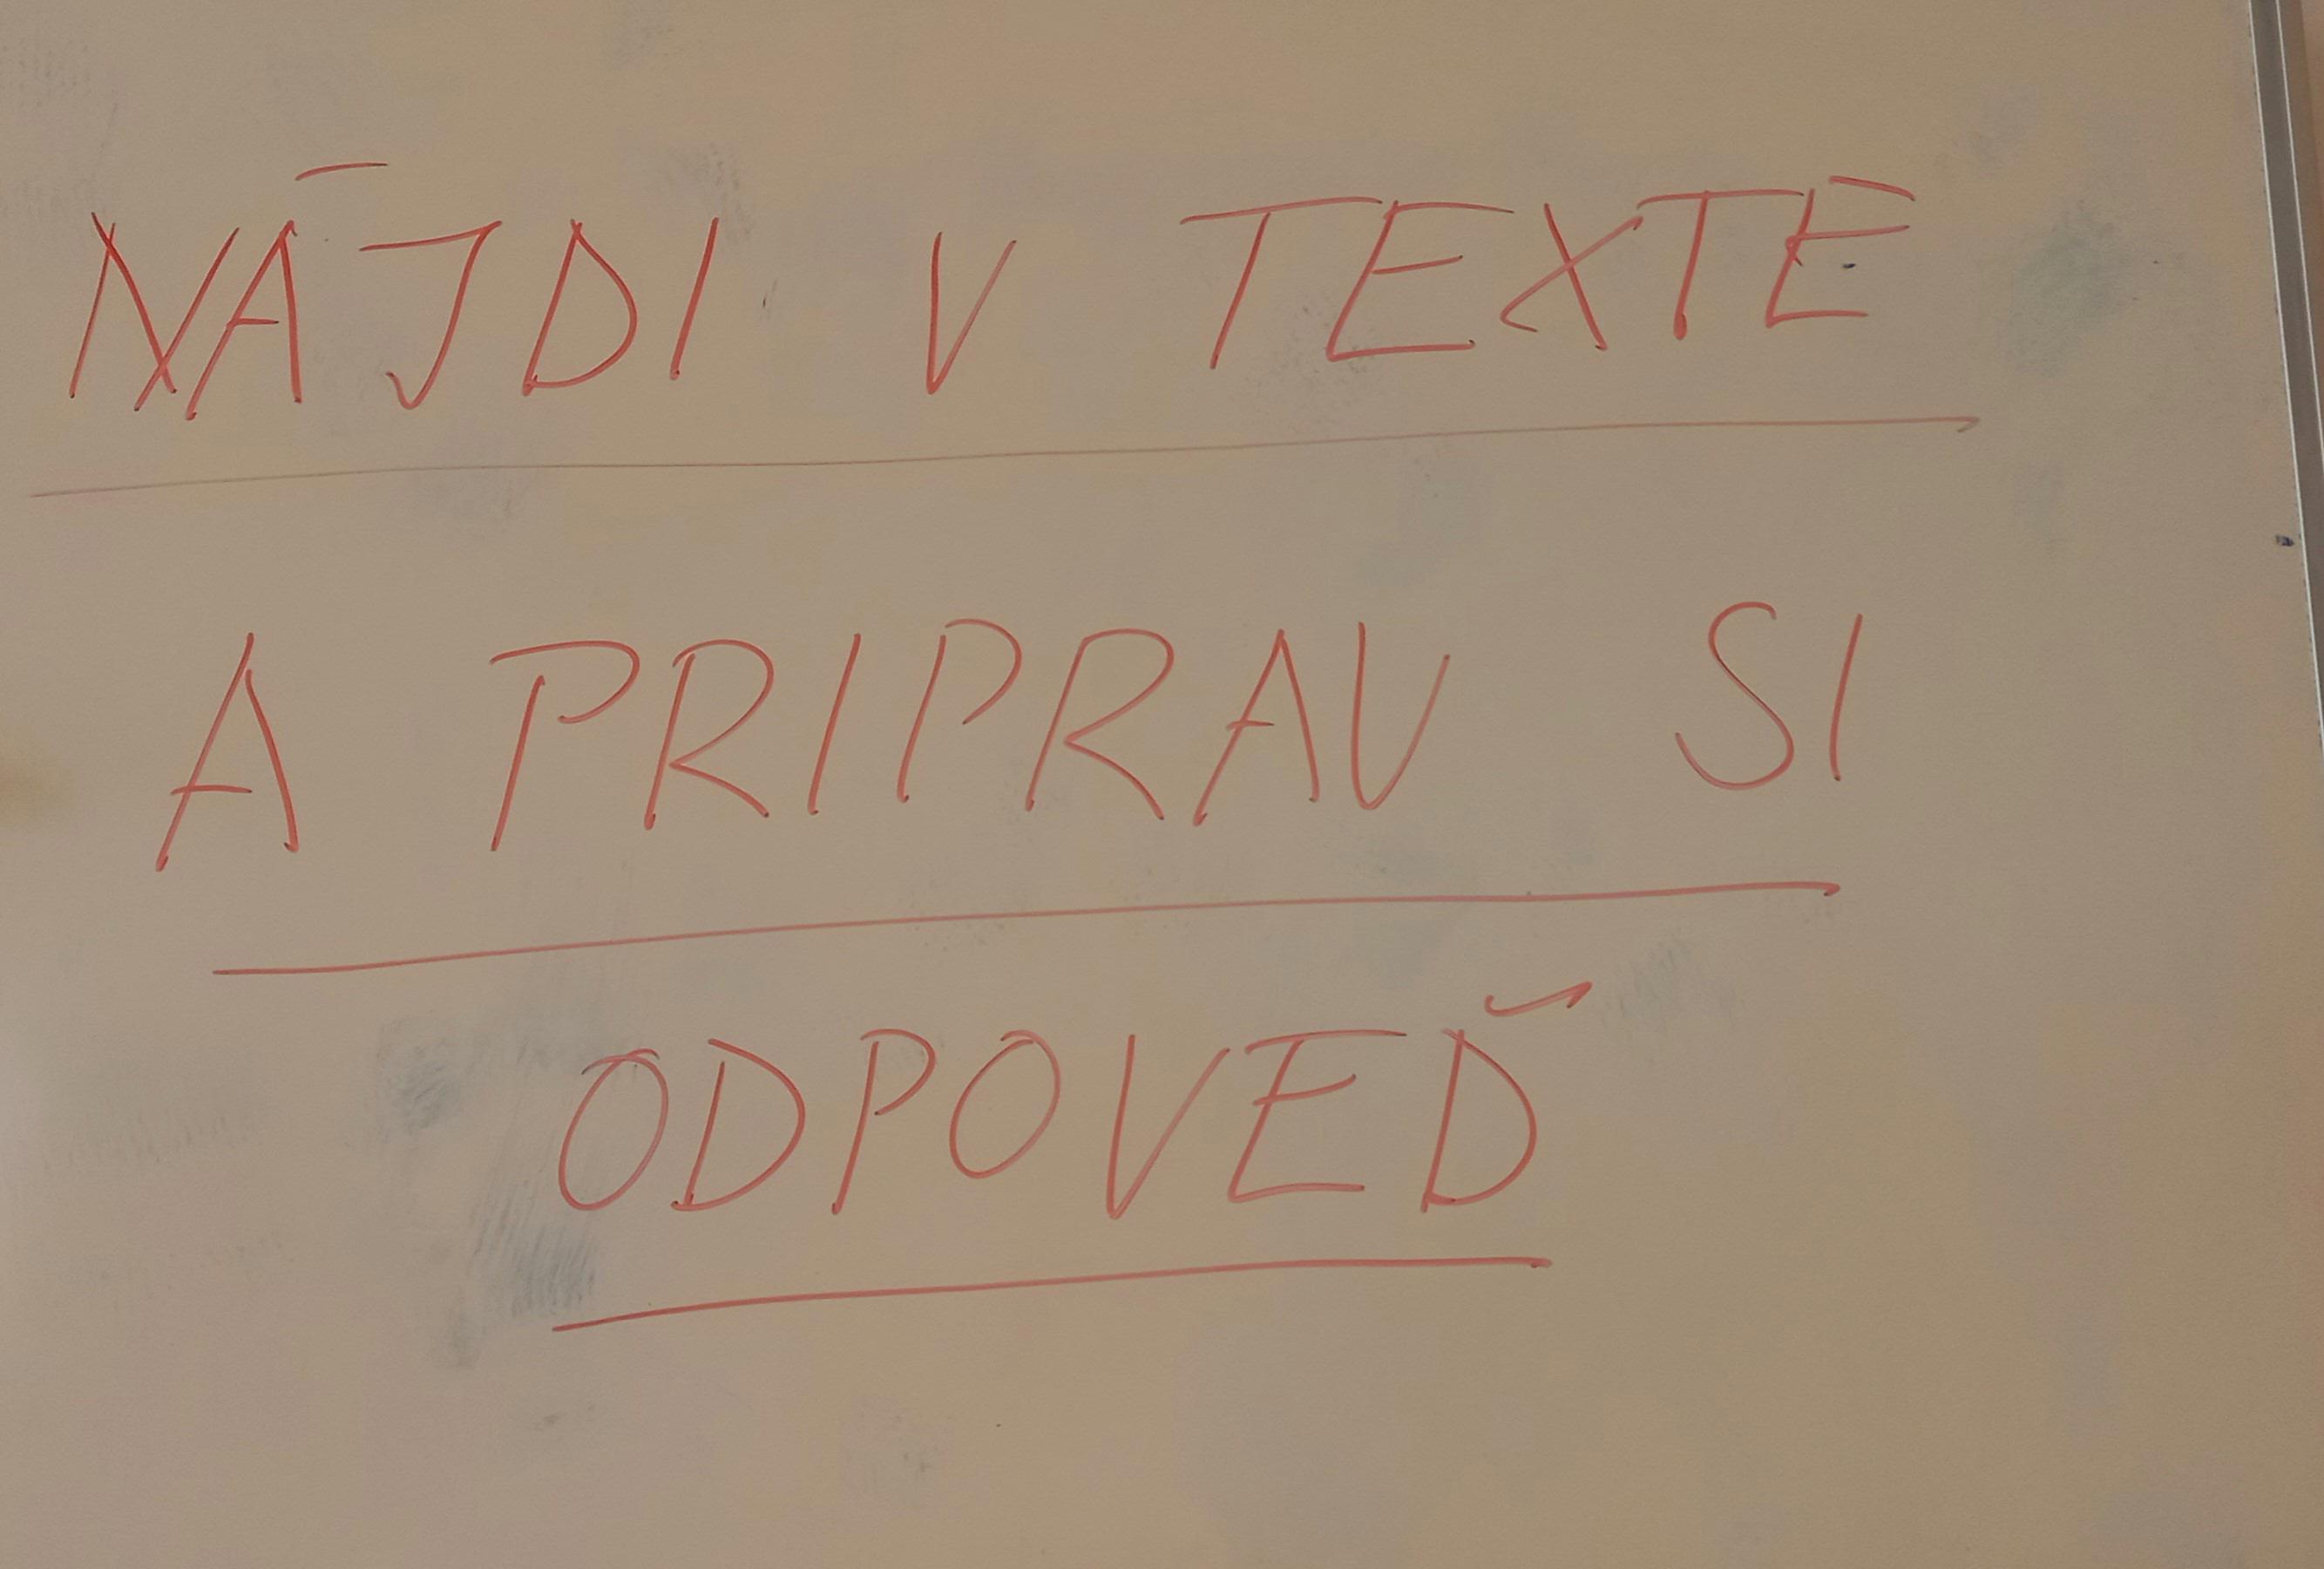 NÁJDI V TEXTE
A PRIPRAV SI
ODPOVEĎ